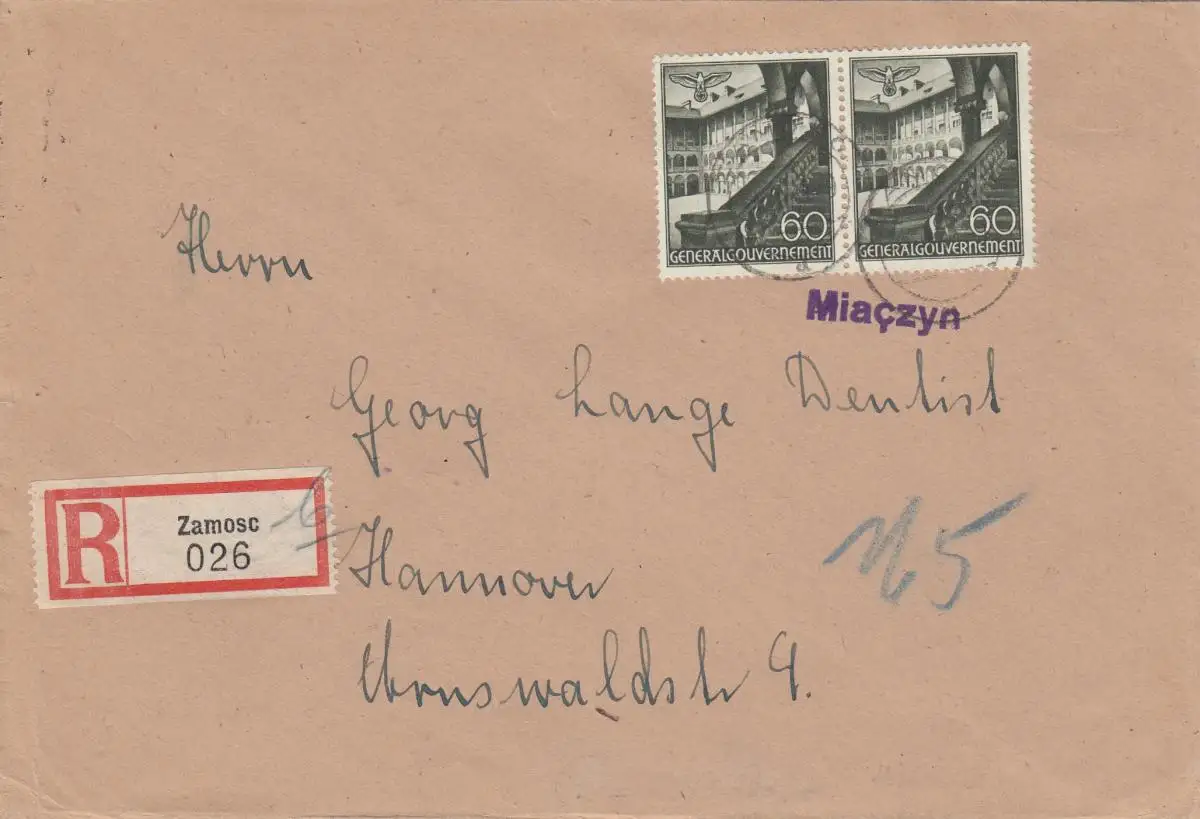 60
GENERALGOUVERNEMENT
60
GENERALGOUVERNEMENT
Miaçzyn
Herrn
Georg Lange Dentist
R
Zamosc
026
Hannover
Arnswaldstr 9.